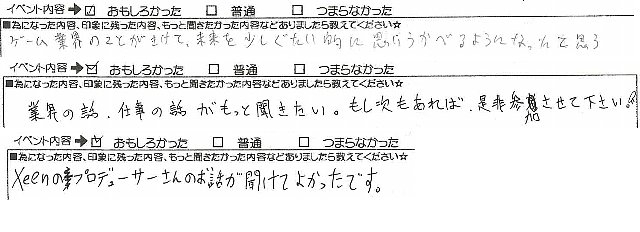 イベント内容→☑ おもしろかった □ 普通 □ つまらなかった
■為になった内容、印象に残った内容、もっと聞きたかった内容などありましたら教えてください☆
ゲーム業界のことがきけて、未来を少しぐたい的に思いうかべるようになったと思う
イベント内容→☑ おもしろかった □ 普通 □ つまらなかった
■為になった内容、印象に残った内容、もっと聞きたかった内容などありましたら教えてください☆
業界の話、仕事の話がもっと聞きたい。もし次もあれば、是非参加させて下さい。
イベント内容→☑ おもしろかった □ 普通 □ つまらなかった
■為になった内容、印象に残った内容、もっと聞きたかった内容などありましたら教えてください☆
Xeenのプロデューサーさんのお話が聞けてよかったです。